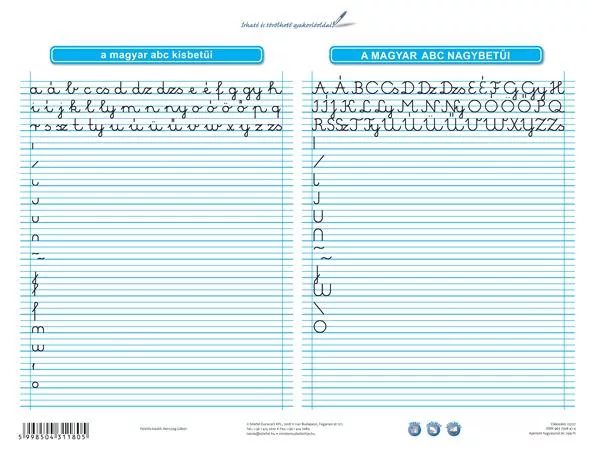 Írható és törölhető gyakorlóoldal!
a magyar abc kisbetűi
a á b c cs d dz dzs e é f g gy h
i í j k l ly m n ny o ó ö ő p q
r s sz t ty u ú ü ű v w x y z zs
A MAGYAR ABC NAGYBETŰI
A Á B C Cs D Dz Dzs E É F G Gy H
I Í J K L Ly M N Ny O Ó Ö Ő P Q
R S Sz T Ty U Ú Ü Ű V W X Y Z Zs
5 998504 311805